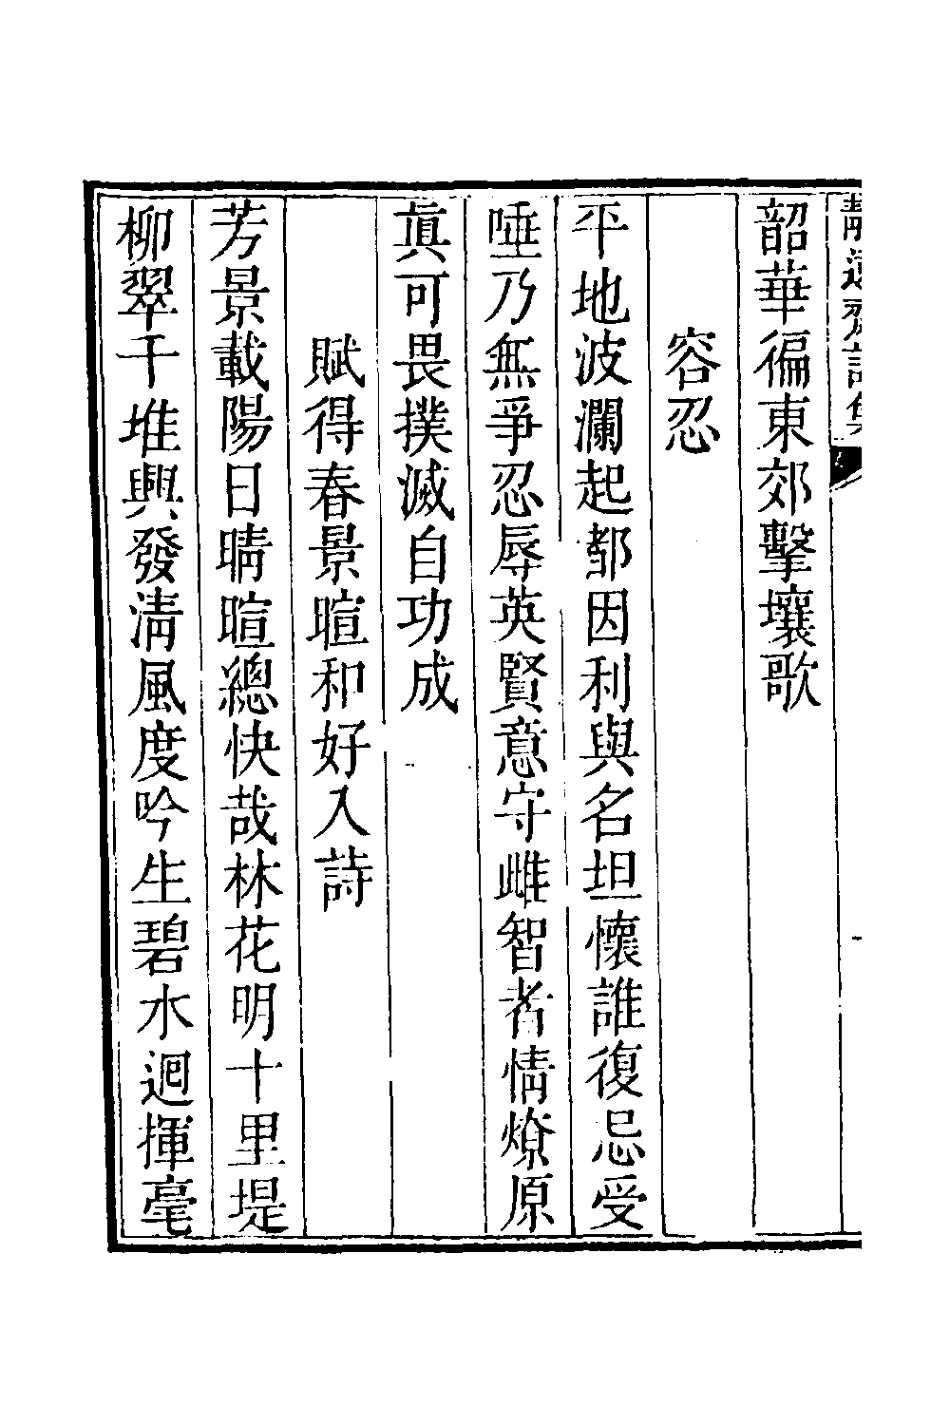 靜遠齋詩集
韶華徧東郊擊壤歌
容忍
平地波瀾起都因利與名坦懷誰復忌受
唾乃無爭忍辱英賢意守雌智者情燎原
眞可畏撲滅自功成
賦得春景暄和好入詩
芳景載陽日晴暄總快哉林花明十里堤
柳翠千堆興發淸風度吟生碧水迴揮毫